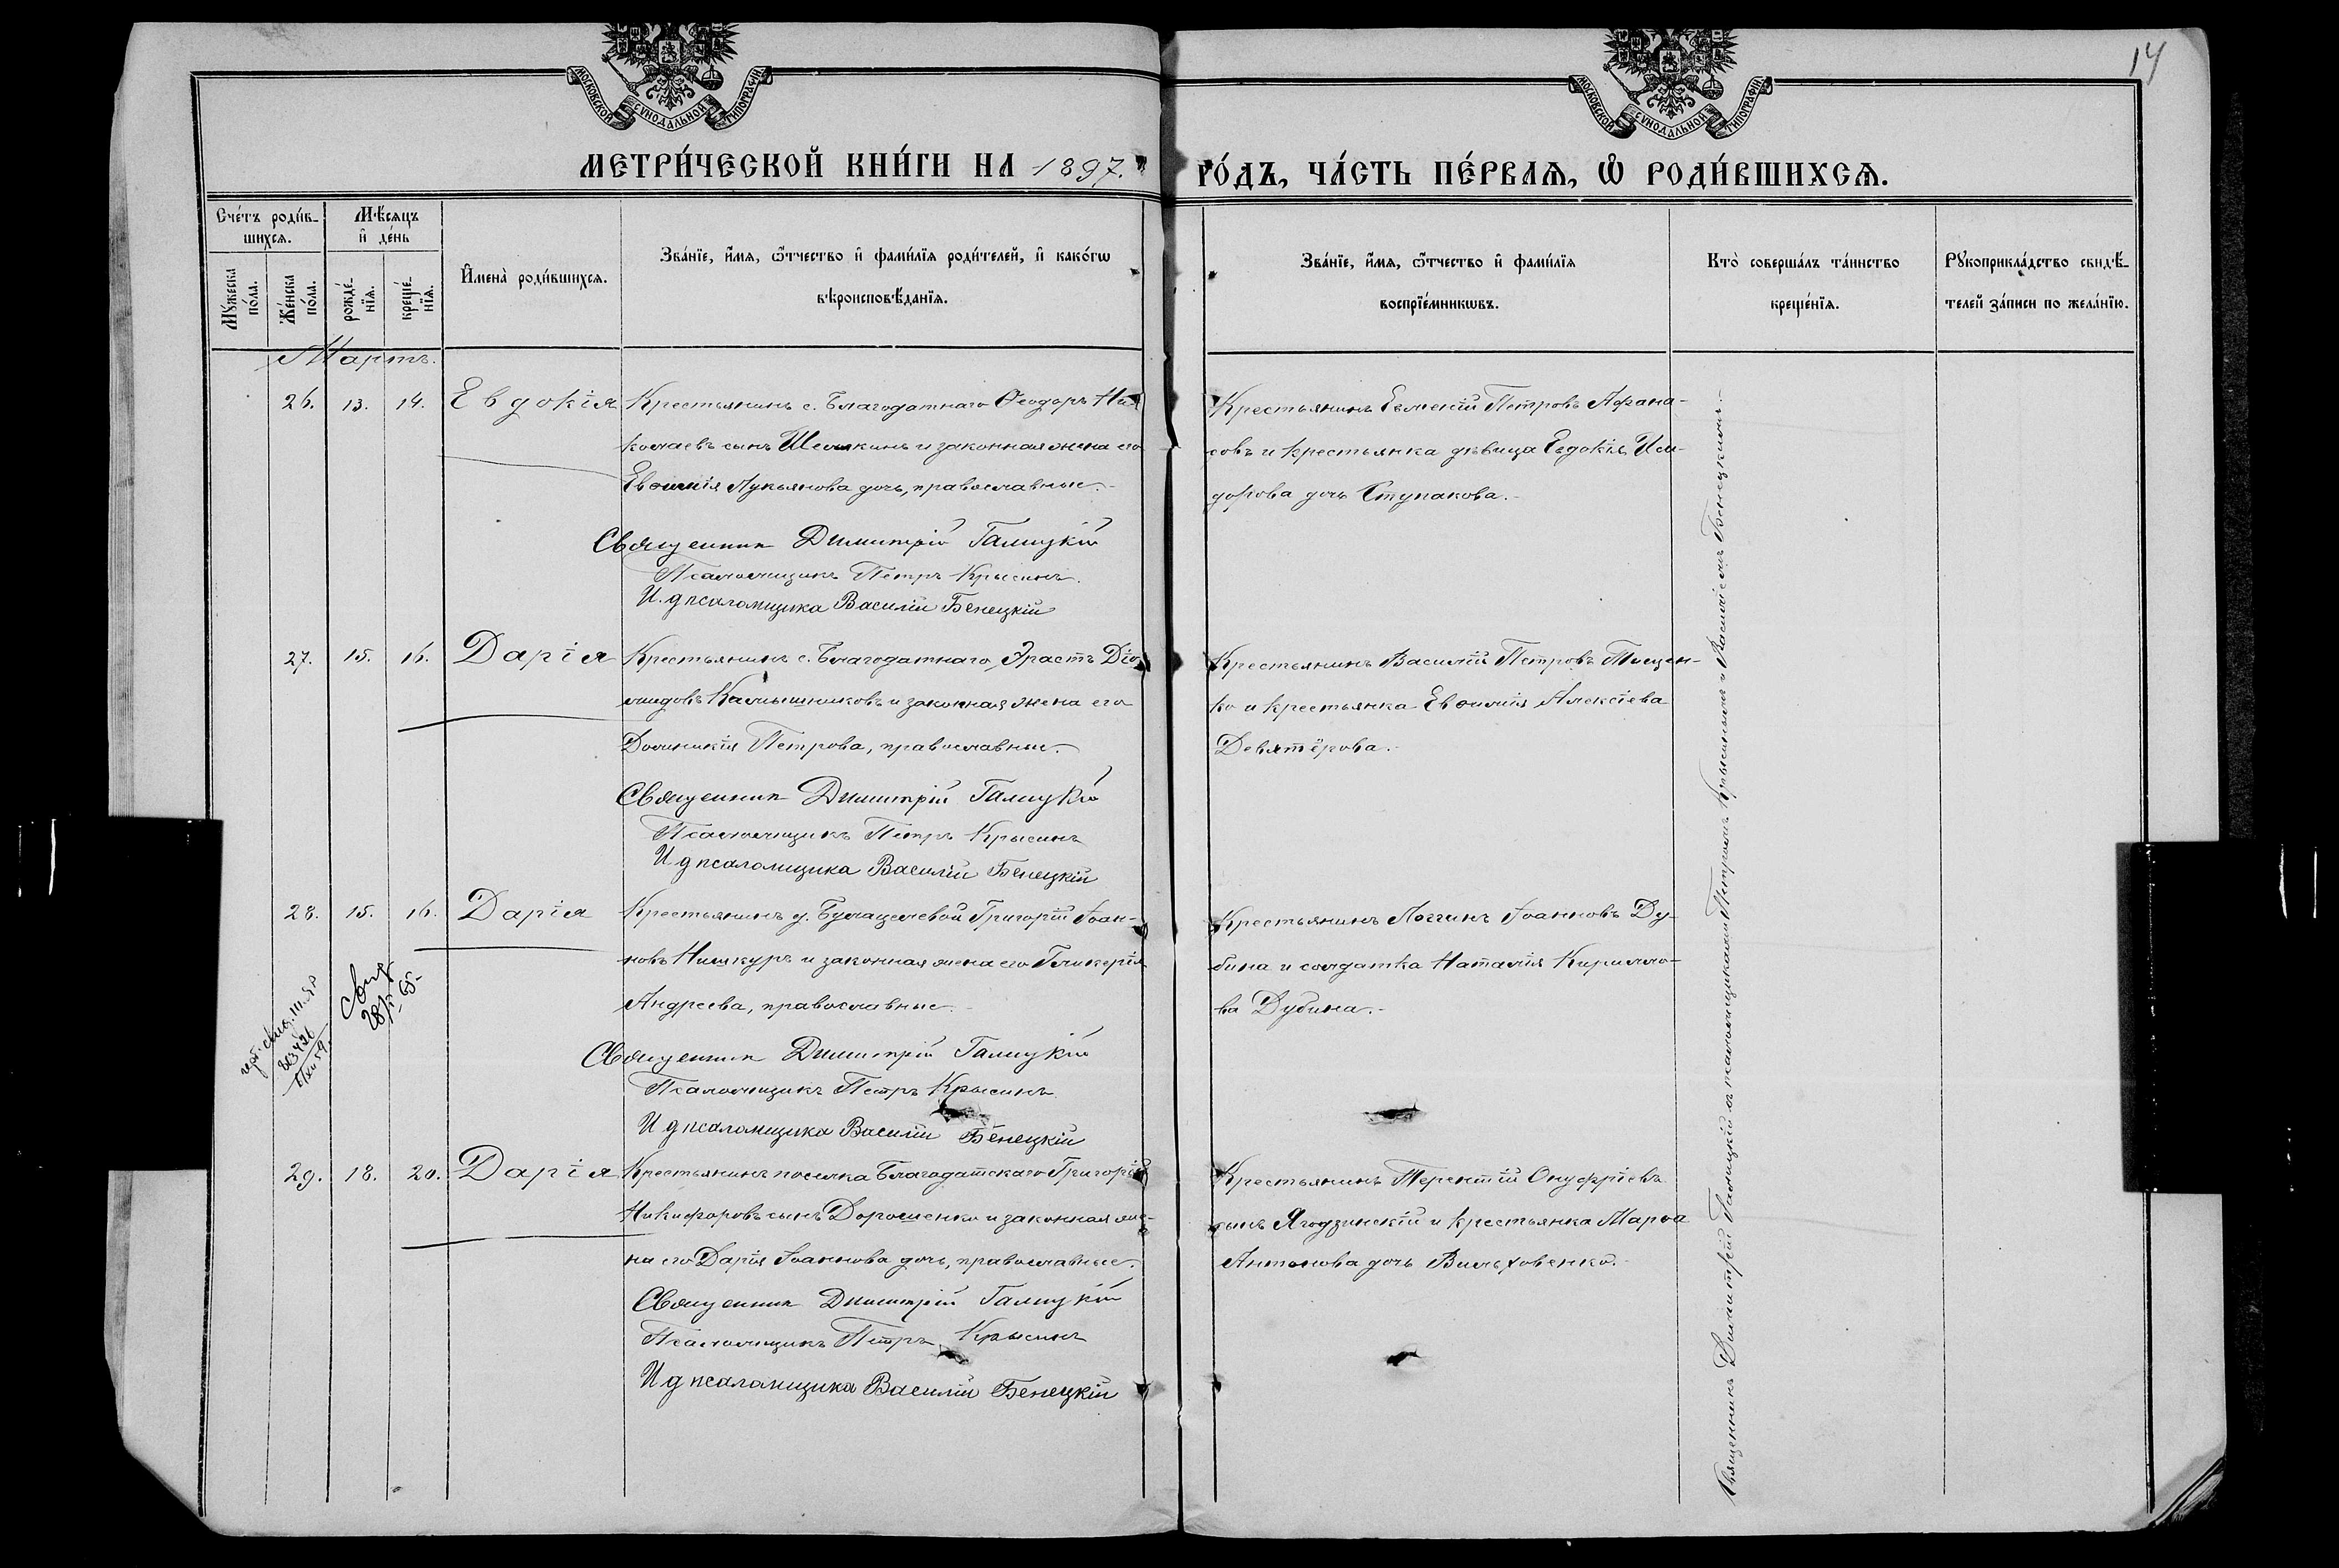 14
МОСКОВСКОЙ СѴНОДАЛЬНОЙ ТИПОГРАФІИ.
МОСКОВСКОЙ СѴНОДАЛЬНОЙ ТИПОГРАФІИ.
МЕТРИ́ЧЕСКОЙ КНИ́ГИ НА 1897. ГО́ДЪ, ЧА́СТЬ ПЕ́РВАѦ, Ѡ РОДИ́ВШИХСѦ.
Сче́тъ роди́в-
шихсѧ.
Мѣ́сяцъ
и҆ де́нь
Мꙋ́жеска
по́ла.
Же́нска
по́ла.
рожде́-
нїѧ.
креще́-
нїѧ.
И҆мена̀ роди́вшихсѧ.
Зва́нїе, и҆́мѧ, ѻ҆́тчество и҆ фами́лїѧ роди́телей, и҆ како́гѡ
вѣроисповѣ́данїѧ.
Зва́нїе, и҆́мѧ, ѻ҆́тчество и҆ фами́лїѧ
воспрїе́мникѡвъ.
Кто̀ соверша́лъ та́инство
креще́нїѧ.
Рꙋкоприкла́дство свидѣ́-
телей за́писи по жела́нїю.
Мартъ.
26. 13. 14. Евдокія Крестьянинъ с. Благодатнаго Ѳеодоръ Ни-
колаевъ сынъ Шемякинъ и законная жена его
Евѳимія Лукьянова дочь, православные.-
Священник Димитрій Галицкій
Псаломщикъ Петръ Крысинъ.
И. д псаломщика Василій Бенецкій
Крестьянинъ Евмений Петровъ Афана-
совъ и крестьянка дѣвица Евдокія Иси-
дорова дочь Ступакова.-
27. 15. 16. Дарія Крестьянинъ с. Благодатнаго Эрастъ Діо-
мидовъ Камышниковъ и законная жена его
Домникія Петрова, православные.-
Священник Димитрій Галицкій
Псаломщикъ Петръ Крысинъ
И д псаломщика Василій Бенецкій
Крестьянинъ Василій Петровъ Тищен-
ко и крестьянка Евѳимія Алексіева
Девятёрова.-
28. 15. 16. Дарія Крестьянинъ д. Григорій Іоан-
новъ Нишкуръ и законная жена его Гликерія
Андреева, православные.-
Священник Димитрій Галицкій
Псаломщикъ Петръ Крысинъ
И д псаломщика Василій Бенецкій
Крестьянинъ Логгинъ Іоанновъ Ду-
бина и солдатка Наталія Кирилло-
ва Дубина.-
29. 18. 20. Дарія Крестьянинъ поселка Благодатскаго Григорій
Никифоровъ сынъ Дорошенко и законная же-
на его Дарія Іоаннова дочь, православные.
Священник Димитрій Галицкій
Псаломщикъ Петръ Крысинъ
И д псаломщика Василій Бенецкій
Крестьянинъ Терентій Онуфріевъ
сынъ Ягодзинскій и крестьянка Марѳа
Антонова дочь Вильховенко.-
Священникъ Димитрій Галицкій съ псаломщиками Петромъ Крысинымъ и Василіемъ Бенецкимъ.-